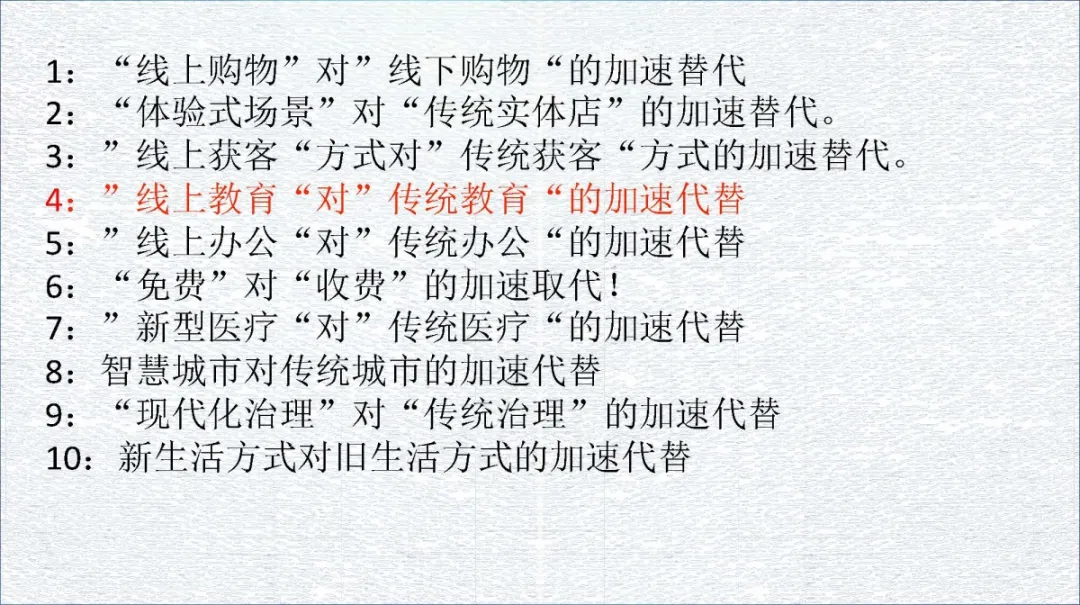 1：“线上购物”对”线下购物“的加速替代
2：“体验式场景”对“传统实体店”的加速替代。
3：”线上获客“方式对”传统获客“方式的加速替代。
4：”线上教育“对”传统教育“的加速代替
5：”线上办公“对”传统办公“的加速代替
6：“免费”对“收费”的加速取代！
7：”新型医疗“对”传统医疗“的加速代替
8：智慧城市对传统城市的加速代替
9：“现代化治理”对“传统治理”的加速代替
10：新生活方式对旧生活方式的加速代替